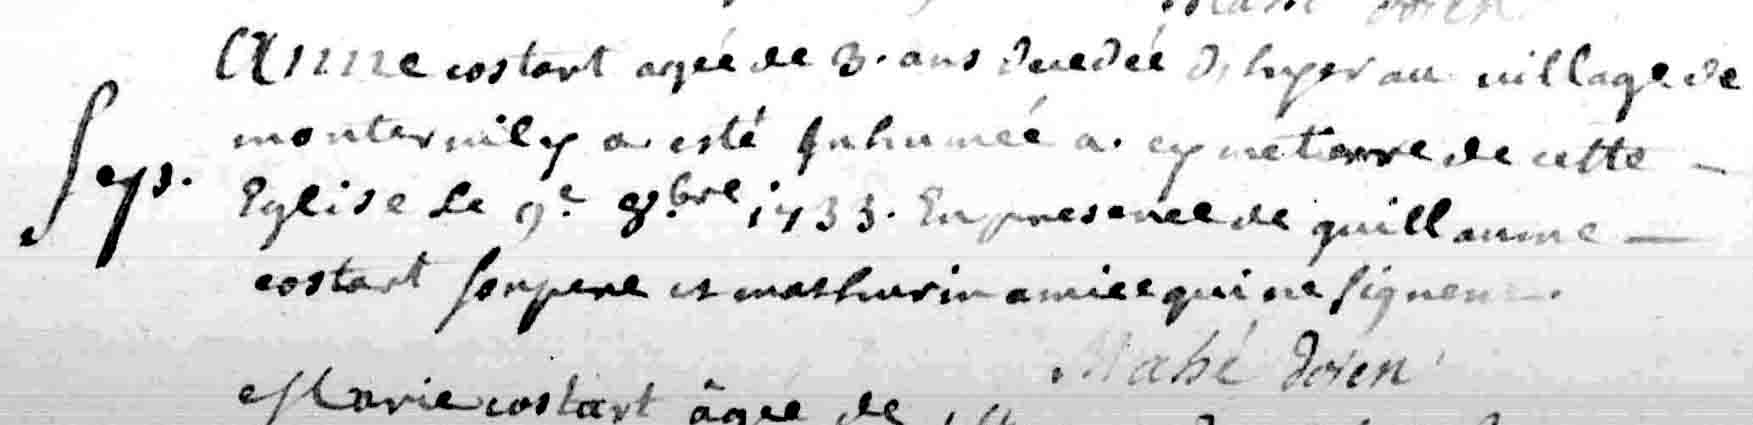 Mahé doien
Anne costart agée de 3. ans decedée d'hyer au village de
monternily a esté Inhumée a. cymeterre de cette –
Seps.
Eglise Le 9.e 8.bre 1733. En presence de guillaume —
costart son pere et mathurin amice qui ne signent.
Mahé doien
Marie costart âgée de